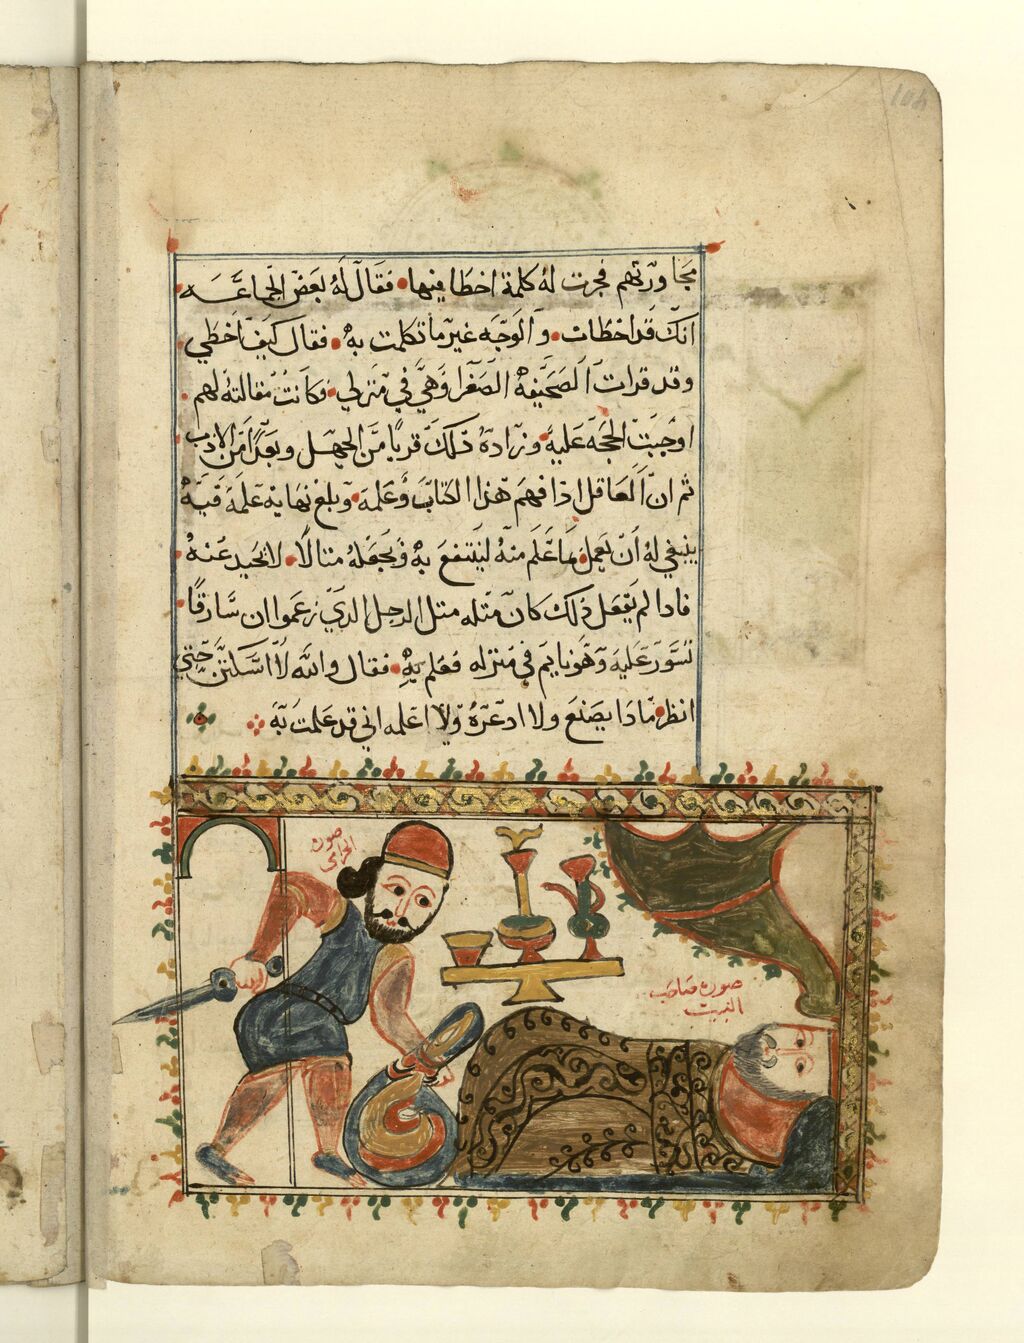 مجاورتهم فجرت له كلمة اخطا فيها • فقال له بعض الجماعه
انك قد اخطات • والوجه غير ما تكلمت به • فقال كيف اخطي
وقد قرات الصحيفة الصفرا وهي في منزلي • فكانت مقالته لهم
اوجبت الحجة عليه • وزاده ذلك قربا من الجهل وبعدا من الادب
ثم ان العاقل اذا فهم هذا الكتاب وعلمه • وبلغ نهاية علمه فيه
ينبغي له ان يعمل بما علم منه لينتفع به ويجعله مثالا • لا تحيد عنه
فاذا لم يفعل ذلك كان مثله مثل الرجل الذي زعموا ان سارقا
تسور عليه وهو نايم في منزله فعلم به • فقال والله لا اسكتن حتي
انظر ماذا يصنع ولا اذعره ولا اعلمه اني قد علمت به
صورة
الحرامي
صورة صاحب
البيت